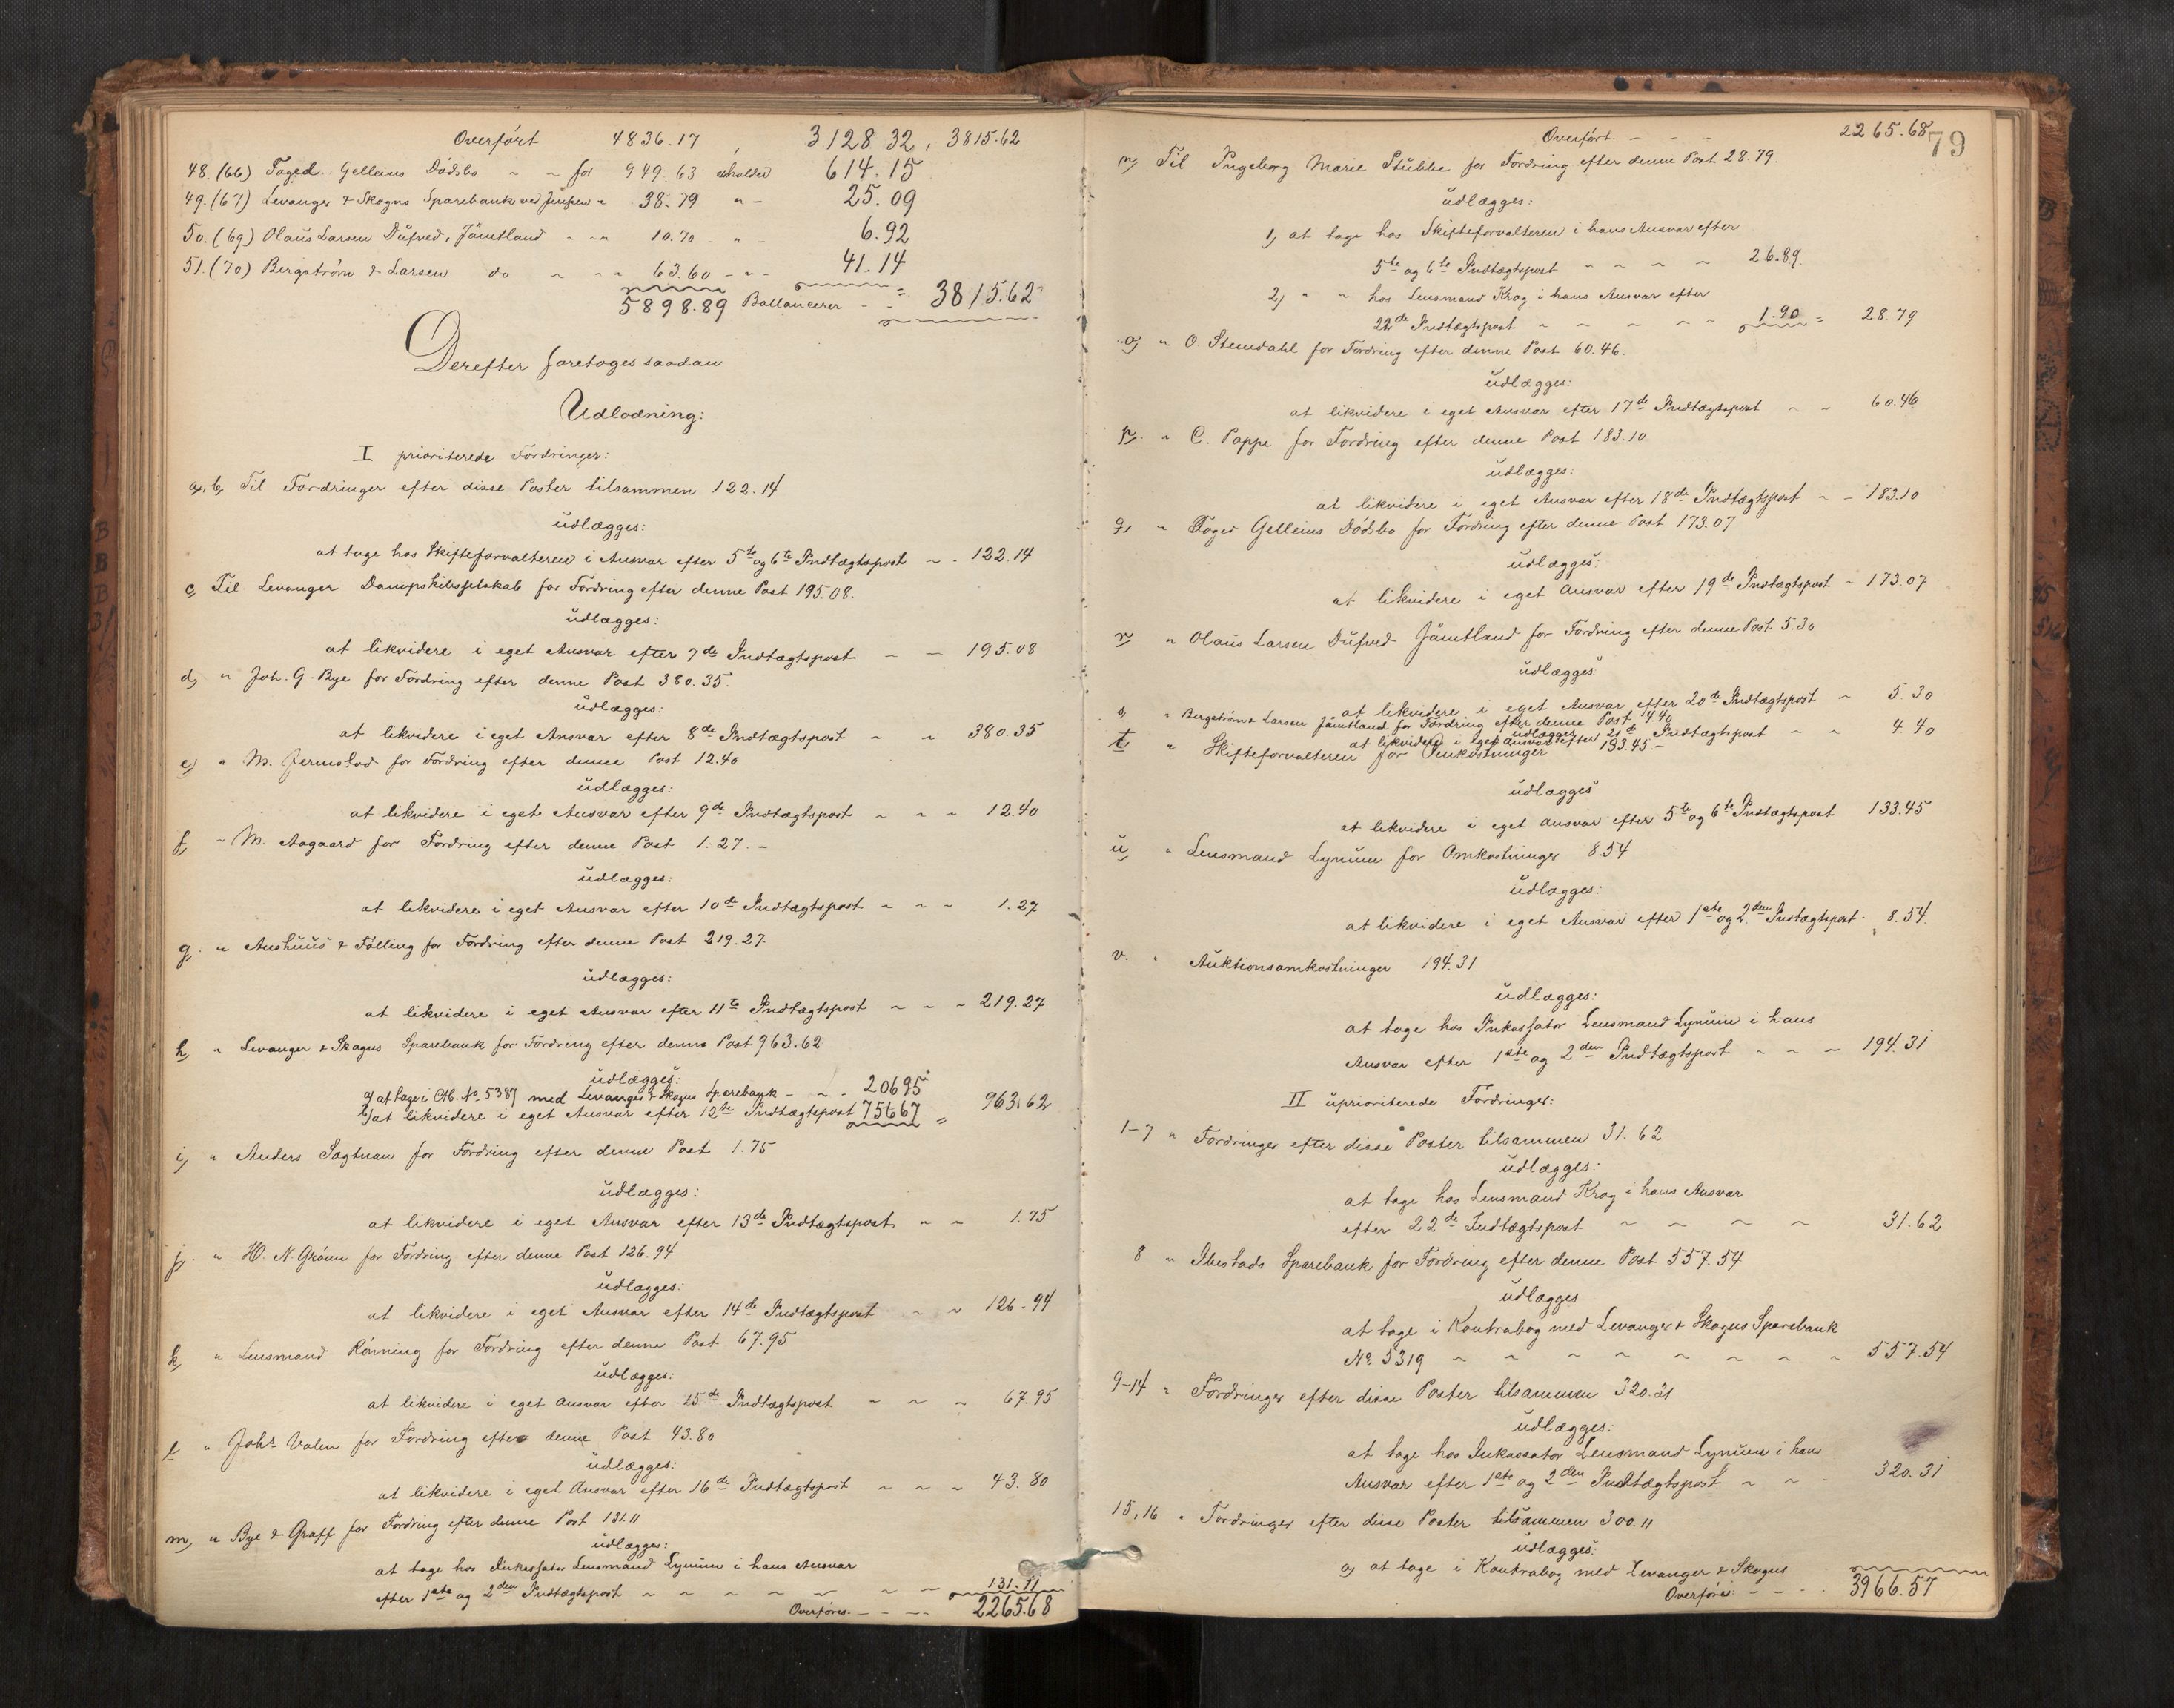 Overført 4836.17 , 3128.32, 3815.62
48. (66) Foged Gelleins Dödsbo " " for 949.63 erholder 614.15
49. (67) Levanger & Skogns Sparebank ved Jenssen " 38.79 " - 25.09
50. (69) Olaus Larsen Dufved, Jämtland - " " 10.70 - " - 6.92
51. (70) Bergström & Larsen do " - " 63.60 - " - 41.14
5898.89 Ballancerer - = 3815.62
Derefter foretoges saadan
Udlodning:
I prioriterede Fordringer:
a, b, Til Fordringer efter disse Poster tilsammen 122.14
udlægges:
at tage hos Skifteforvalteren i Ansvar efter 5te og 6te Indtægtspost - - 122.14
c, Til Levanger Dampskibsselskab for Fordring efter denne Post 195.08.
udlægges:
at likvidere i eget Ansvar efter 7de Indtægtspost - - 195.08
d, " Joh. G. Bye for Fordring efter denne Post 380.35.
udlægges:
at likvidere i eget Ansvar efter 8de Indtægtspost - - 380.35
e, " M. Jermstad for Fordring efter denne Post 12.40
udlægges:
at likvidere i eget Ansvar efter 9de Indtægtspost - - - 12.40
f, " M. Aagaard for Fordring efter denne Post 1.27. -
udlægges:
at likvidere i eget Ansvar efter 10de Indtægtspost - - - 1.27
g. " Aushuus & Fölling for Fordring efter denne Post 219.27
udlægges:
at likvidere i eget Ansvar efter 11te Indtægtspost - - - 219.27
h, " Levanger & Skogns Sparebank for Fordring efter denne Post 963.62
udlægges:
a) at tage i No. 5387 med Levanger & Skogns Sparebank - - - 206 95
b) at likvidere i eget Ansvar efter 12te Indtægtspost 756 67 = 963.62
i, " Anders Sagtnan for Fordring efter denne Post 1.75
udlægges:
at likvidere i eget Ansvar efter 13de Indtægtspost - - 1.75
j, " H. N. Grönn for Fordring efter denne Post 126.94
udlægges:
at likvidere i eget Ansvar efter 14de Indtægtspost - - 126.94
k, " Lensmand Rönning for Fordring efter denne Post 67.95
udlægges:
at likvidere i eget Ansvar efter 15de Indtægtspost - - - 67.95
l " Johs Valen for Fordring efter denne Post 43.80
udlægges:
at likvidere i eget Ansvar efter 16de Indtægtspost - - - 43.80
m, " Bye & Graff for Fordring efter denne Post 131.11
udlægges:
at tage hos Inkassator Lensmand Lynum i hans Ansvar
efter 1ste og 2den Indtægtspost - - - - - - - 131.11
Overföres - - - 2265.68
79
Overført - - - 2265.68
n, Til Ingeborg Marie Stubbe for Fordring efter denne Post 28.79.
udlægges:
1, at tage hos Skifteforvalteren i hans Ansvar efter
5te og 6te Indtægtspost - - - - 26.89.
2, " " hos Lensmand Krog i hans Ansvar efter
22de Indtægtspost - - - - - 1.90 = 28.79
o, " O. Stendahl for Fordring efter denne Post 60.46.
udlægges:
at likvidere i eget Ansvar efter 17de Indtægtspost - - 60.46
p. " C. Poppe for Fordring efter denne Post 183.10
udlægges:
at likvidere i eget Ansvar efter 18de Indtægtspost - - 183.10
q, " Foged Gelleins Dödsbo for Fordring efter denne Post 173.07
udlægges:
at likvidere i eget Ansvar efter 19de Indtægtspost - 173.07
r, " Olaus Larsen Dufved Jämtland for Fordring efter denne Post 5.30
udlægges
at likvidere i eget Ansvar efter 20de Indtægtspost - 5.30
s, " Bergström & Larsen Jämtland for Fordring efter denne Post 4.40
udlægges
at likvidere i eget Ansvar efter 21de Indtægtspost - - 4.40
t, " Skifteforvalteren for Omkostninger 133.45 -
udlægges
at likvidere i eget Ansvar efter 5te og 6te Indtægtspost 133.45
u, " Lensmand Lynum for Omkostninger 8.54
udlægges:
at likvidere i eget Ansvar efter 1ste og 2den Indtægtspost 8.54.
v. " Auktionsomkostninger 194.31
udlægges:
at tage hos Inkassator Lensmand Lynum i hans
Ansvar efter 1ste og 2den Indtægtspost - - - 194.31
II uprioriterede Fordringer:
1-7 " Fordringer efter disse Poster tilsammen 31.62
udlægges:
at tage hos Lensmand Krog i hans Ansvar
efter 22de Indtægtspost - - - - 31.62
8 " Ibestads Sparebank for Fordring efter denne Post 557.54
udlægges
at tage i Kontrabog med Levanger & Skogns Sparebank
No. 5319 - - - - - - - - 557.54
9-14 " Fordringer efter disse Poster tilsammen 320.31
udlægges:
at tage hos Inkassator Lensmand Lynum i hans
Ansvar efter 1ste og 2den Indtægtspost - - - 320.31
15, 16 " Fordringer efter disse Poster tilsammen 300.11
udlægges:
a, at tage i Kontrabog med Levanger & Skogns
Overföres - - - 3966.57